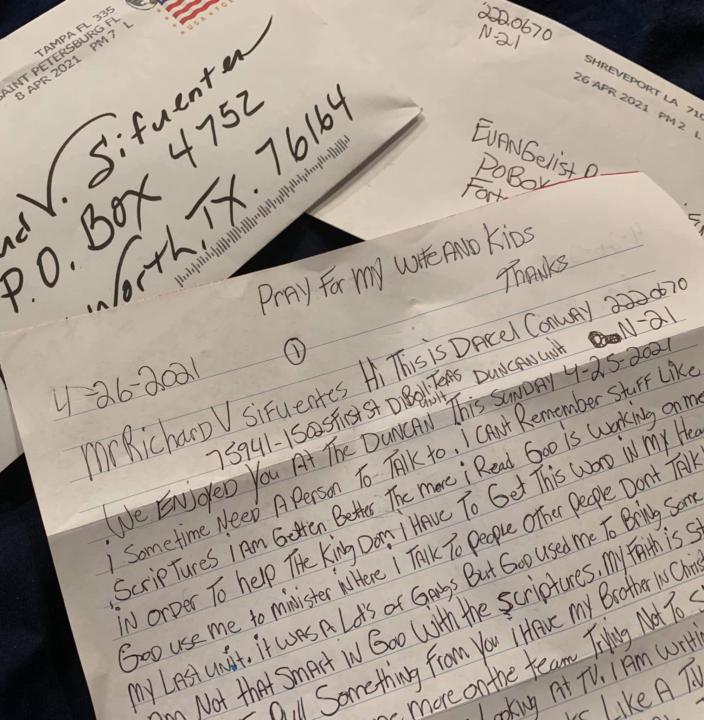 TAMPA FL 335
SAINT PETERSBURG FL
8 APR 2021 PM 7 L
V. Sifuentes
P.O. BOX 4752
Worth, TX. 76164
2220670
N-21
SHREVEPORT LA
26 APR 2021 PM 2 L
EVANGelist
PO BOX
Fort
PRAY FOR MY WIFE AND KIDS
THANKS
①
4-26-2021
Hi THis is DARCel CONWAY 2220670
N-21
MR RicHARD V SiFUENTES
75941-1502 First St DiBoll TeXAS DUNCAN UNIT
We ENJOYeD YOU AT THe DUNCAN UNIT THis SUNDAY 4-25-2021
i SOMETime NeeD A PersoN To TAlK to. i CANT RememBeR STUFF LiKe
SCRiPTURes i AM GeTTeN BeTTeR THe more i ReaD GOD is WORKiNg ON me
iN orDeR To HelP THe KiNg Dom i HAVe To GeT THis WorD iN mY
GOD Use me to miNisteR iN HeRe i TAlK To PeoPle OTHeR PeoPle DoNt TAlK
MY LAst UNit. it WAS A LoT's oF GANgs BUT GOD UseD me To BRiNg Some
Am NoT THAT SmArt iN GOD WitH the SCRiPTURes. MY FAitH is
SomeTHiNg From YoU i HAVe mY BroTHeR iN
more oN the teAm TRYiNg NoT To
LooKiNg AT TV. i Am
LiKe A